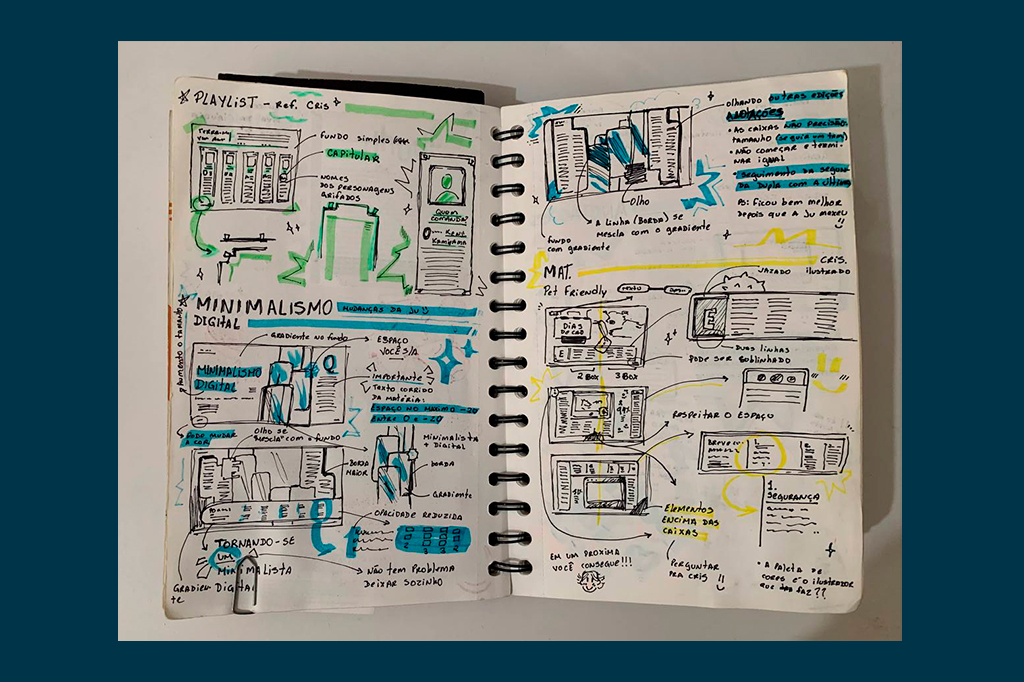 PLAYLIST - REF. CRIS
FUNDO SIMPLES
CAPITOLAR
NOMES
DOS PERSONAGENS
GRIFADOS
QUEM
COMANDA?
KAMIYAMA
MINIMALISMO
DIGITAL
MUDANÇAS DA JU
AUMENTO O TAMANHO
GRADIENTE NO FUNDO
ESPAÇO
VOCÊ S/A
MINIMALISMO
DIGITAL
IMPORTANTE
TEXTO CORRIDO
DA MATÉRIA:
ESPAÇO NO MÁXIMO -20
ENTRE 0 e -20
PODE MUDAR
A COR
OLHO SE
"MESCLA" COM O FUNDO
BORDA
MAIOR
MINIMALISTA
+ DIGITAL
BORDA
GRADIENTE
OPACIDADE REDUZIDA
TORNANDO-SE
UM
MINIMALISTA
DIGITAL
GRADIEN
TE
NÃO TEM PROBLEMA
DEIXAR SOZINHO
OLHANDO OUTRAS EDIÇÕES
ANOTAÇÕES
• AS CAIXAS NÃO PRECISÃO
TAMANHO (SEGUIR UM TAM)
• NÃO COMEÇAR E TERMI
NAR IGUAL
• SEGUIMENTO DA SEGUN
DA DUPLA COM A ÚLTIMA
PS: FICOU BEM MELHOR
DEPOIS QUE A JU MEXEU
OLHO
A LINHA (BORDA) SE
MESCLA COM O GRADIENTE
FUNDO
COM GRADIENTE
MAT.
CRIS.
Pet Friendly
VAZADO ILUSTRADO
DIAS
DE CÃO
E
E
DUAS LINHAS
PODE SER SUBLINHADO
2 BOX 3 BOX
RESPEITAR O ESPAÇO
1.
SEGURANÇA
ELEMENTOS
ENCIMA DAS
CAIXAS
PERGUNTAR
PRA CRIS !!
EM UM PROXIMA
VOCÊ CONSEGUE!!!
• A PALETA DE
CORES É O ILUSTRADOR
QUE FAZ??